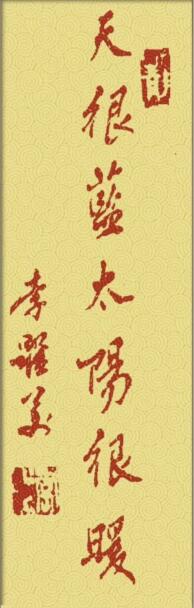 天很藍太陽很暖
李躍美